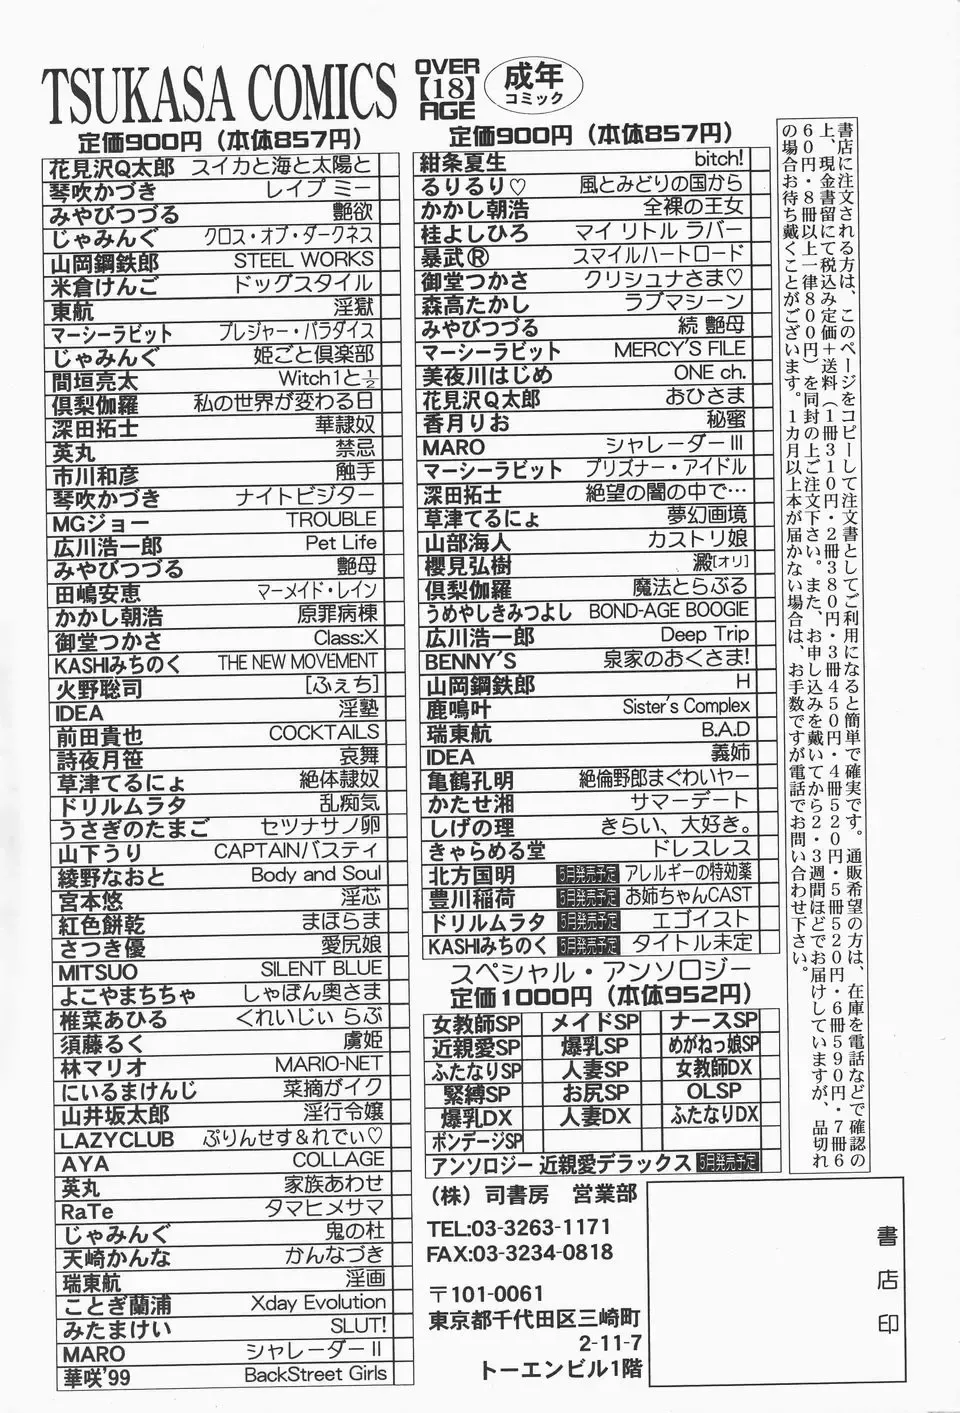 TSUKASA COMICS
OVER
【18】
AGE
成年
コミック
定価900円（本体857円）
花見沢Q太郎 スイカと海と太陽と
琴吹かづき レイプ ミー
みやびつづる 艶欲
じゃみんぐ クロス・オブ・ダークネス
山岡鋼鉄郎 STEEL WORKS
米倉けんご ドッグスタイル
東航 淫獄
マーシーラビット プレジャー・パラダイス
じゃみんぐ 姫ごと倶楽部
間垣亮太 Witch1と½
倶梨伽羅 私の世界が変わる日
深田拓士 華隷奴
英丸 禁忌
市川和彦 触手
琴吹かづき ナイトビジター
MGジョー TROUBLE
広川浩一郎 Pet Life
みやびつづる 艶母
田嶋安恵 マーメイド・レイン
かかし朝浩 原罪病棟
御堂つかさ Class:X
KASHIみちのく THE NEW MOVEMENT
火野聡司 [ふぇち]
IDEA 淫塾
前田貴也 COCKTAILS
詩夜月笹 哀舞
草津てるにょ 絶体隷奴
ドリルムラタ 乱痴気
うさぎのたまご セツナサノ卵
山下うり CAPTAINバスティ
綾野なおと Body and Soul
宮本悠 淫芯
紅色餅乾 まほらま
さつき優 愛尻娘
MITSUO SILENT BLUE
よこやまちちゃ しゃぼん奥さま
椎菜あひる くれいじぃ らぶ
須藤るく 虜姫
林マリオ MARIO-NET
にいるまけんじ 菜摘がイク
山井坂太郎 淫行令嬢
LAZYCLUB ぷりんせす&れでぃ♡
AYA COLLAGE
英丸 家族あわせ
RaTe タマヒメサマ
じゃみんぐ 鬼の杜
天崎かんな かんなづき
瑞東航 淫画
ことぎ蘭浦 Xday Evolution
みたまけい SLUT!
MARO シャレーダーⅡ
華咲'99 BackStreet Girls
定価900円（本体857円）
紺条夏生 bitch!
るりるり♡ 風とみどりの国から
かかし朝浩 全裸の王女
桂よしひろ マイ リトル ラバー
暴武Ⓡ スマイルハートロード
御堂つかさ クリシュナさま♡
森高たかし ラブマシーン
みやびつづる 続 艶母
マーシーラビット MERCY'S FILE
美夜川はじめ ONE ch.
花見沢Q太郎 おひさま
香月りお 秘蜜
MARO シャレーダーⅢ
マーシーラビット プリズナー・アイドル
深田拓士 絶望の闇の中で…
草津てるにょ 夢幻画境
山部海人 カストリ娘
櫻見弘樹 澱[オリ]
倶梨伽羅 魔法とらぶる
うめやしきみつよし BOND-AGE BOOGIE
広川浩一郎 Deep Trip
BENNY'S 泉家のおくさま!
山岡鋼鉄郎 H
鹿鳴叶 Sister's Complex
瑞東航 B.A.D
IDEA 義姉
亀鶴孔明 絶倫野郎まぐわいヤー
かたせ湘 サマーデート
しげの理 きらい、大好き。
きゃらめる堂 ドレスレス
北方国明 5月発売予定 アレルギーの特効薬
豊川稲荷 5月発売予定 お姉ちゃんCAST
ドリルムラタ 5月発売予定 エゴイスト
KASHIみちのく 5月発売予定 タイトル未定
スペシャル・アンソロジー
定価1000円（本体952円）
女教師SP メイドSP ナースSP
近親愛SP 爆乳SP めがねっ娘SP
ふたなりSP 人妻SP 女教師DX
緊縛SP お尻SP OLSP
爆乳DX 人妻DX ふたなりDX
ボンデージSP
アンソロジー 近親愛デラックス 5月発売予定
（株）司書房 営業部
TEL:03-3263-1171
FAX:03-3234-0818
〒101-0061
東京都千代田区三崎町
2-11-7
トーエンビル1階
書店に注文される方は、このページをコピーして注文書としてご利用になると簡単で確実です。通販希望の方は、在庫を電話などで確認の
上、現金書留にて税込み定価＋送料（1冊310円・2冊380円・3冊450円・4冊520円・5冊520円・6冊590円・7冊6
60円・8冊以上一律800円）を同封の上ご注文下さい。また、お申し込みを戴いてから2・3週間ほどでお届けしていますが、品切れ
の場合お待ち戴くことがございます。1カ月以上本が届かない場合は、お手数ですが電話でお問い合わせ下さい。
書店印